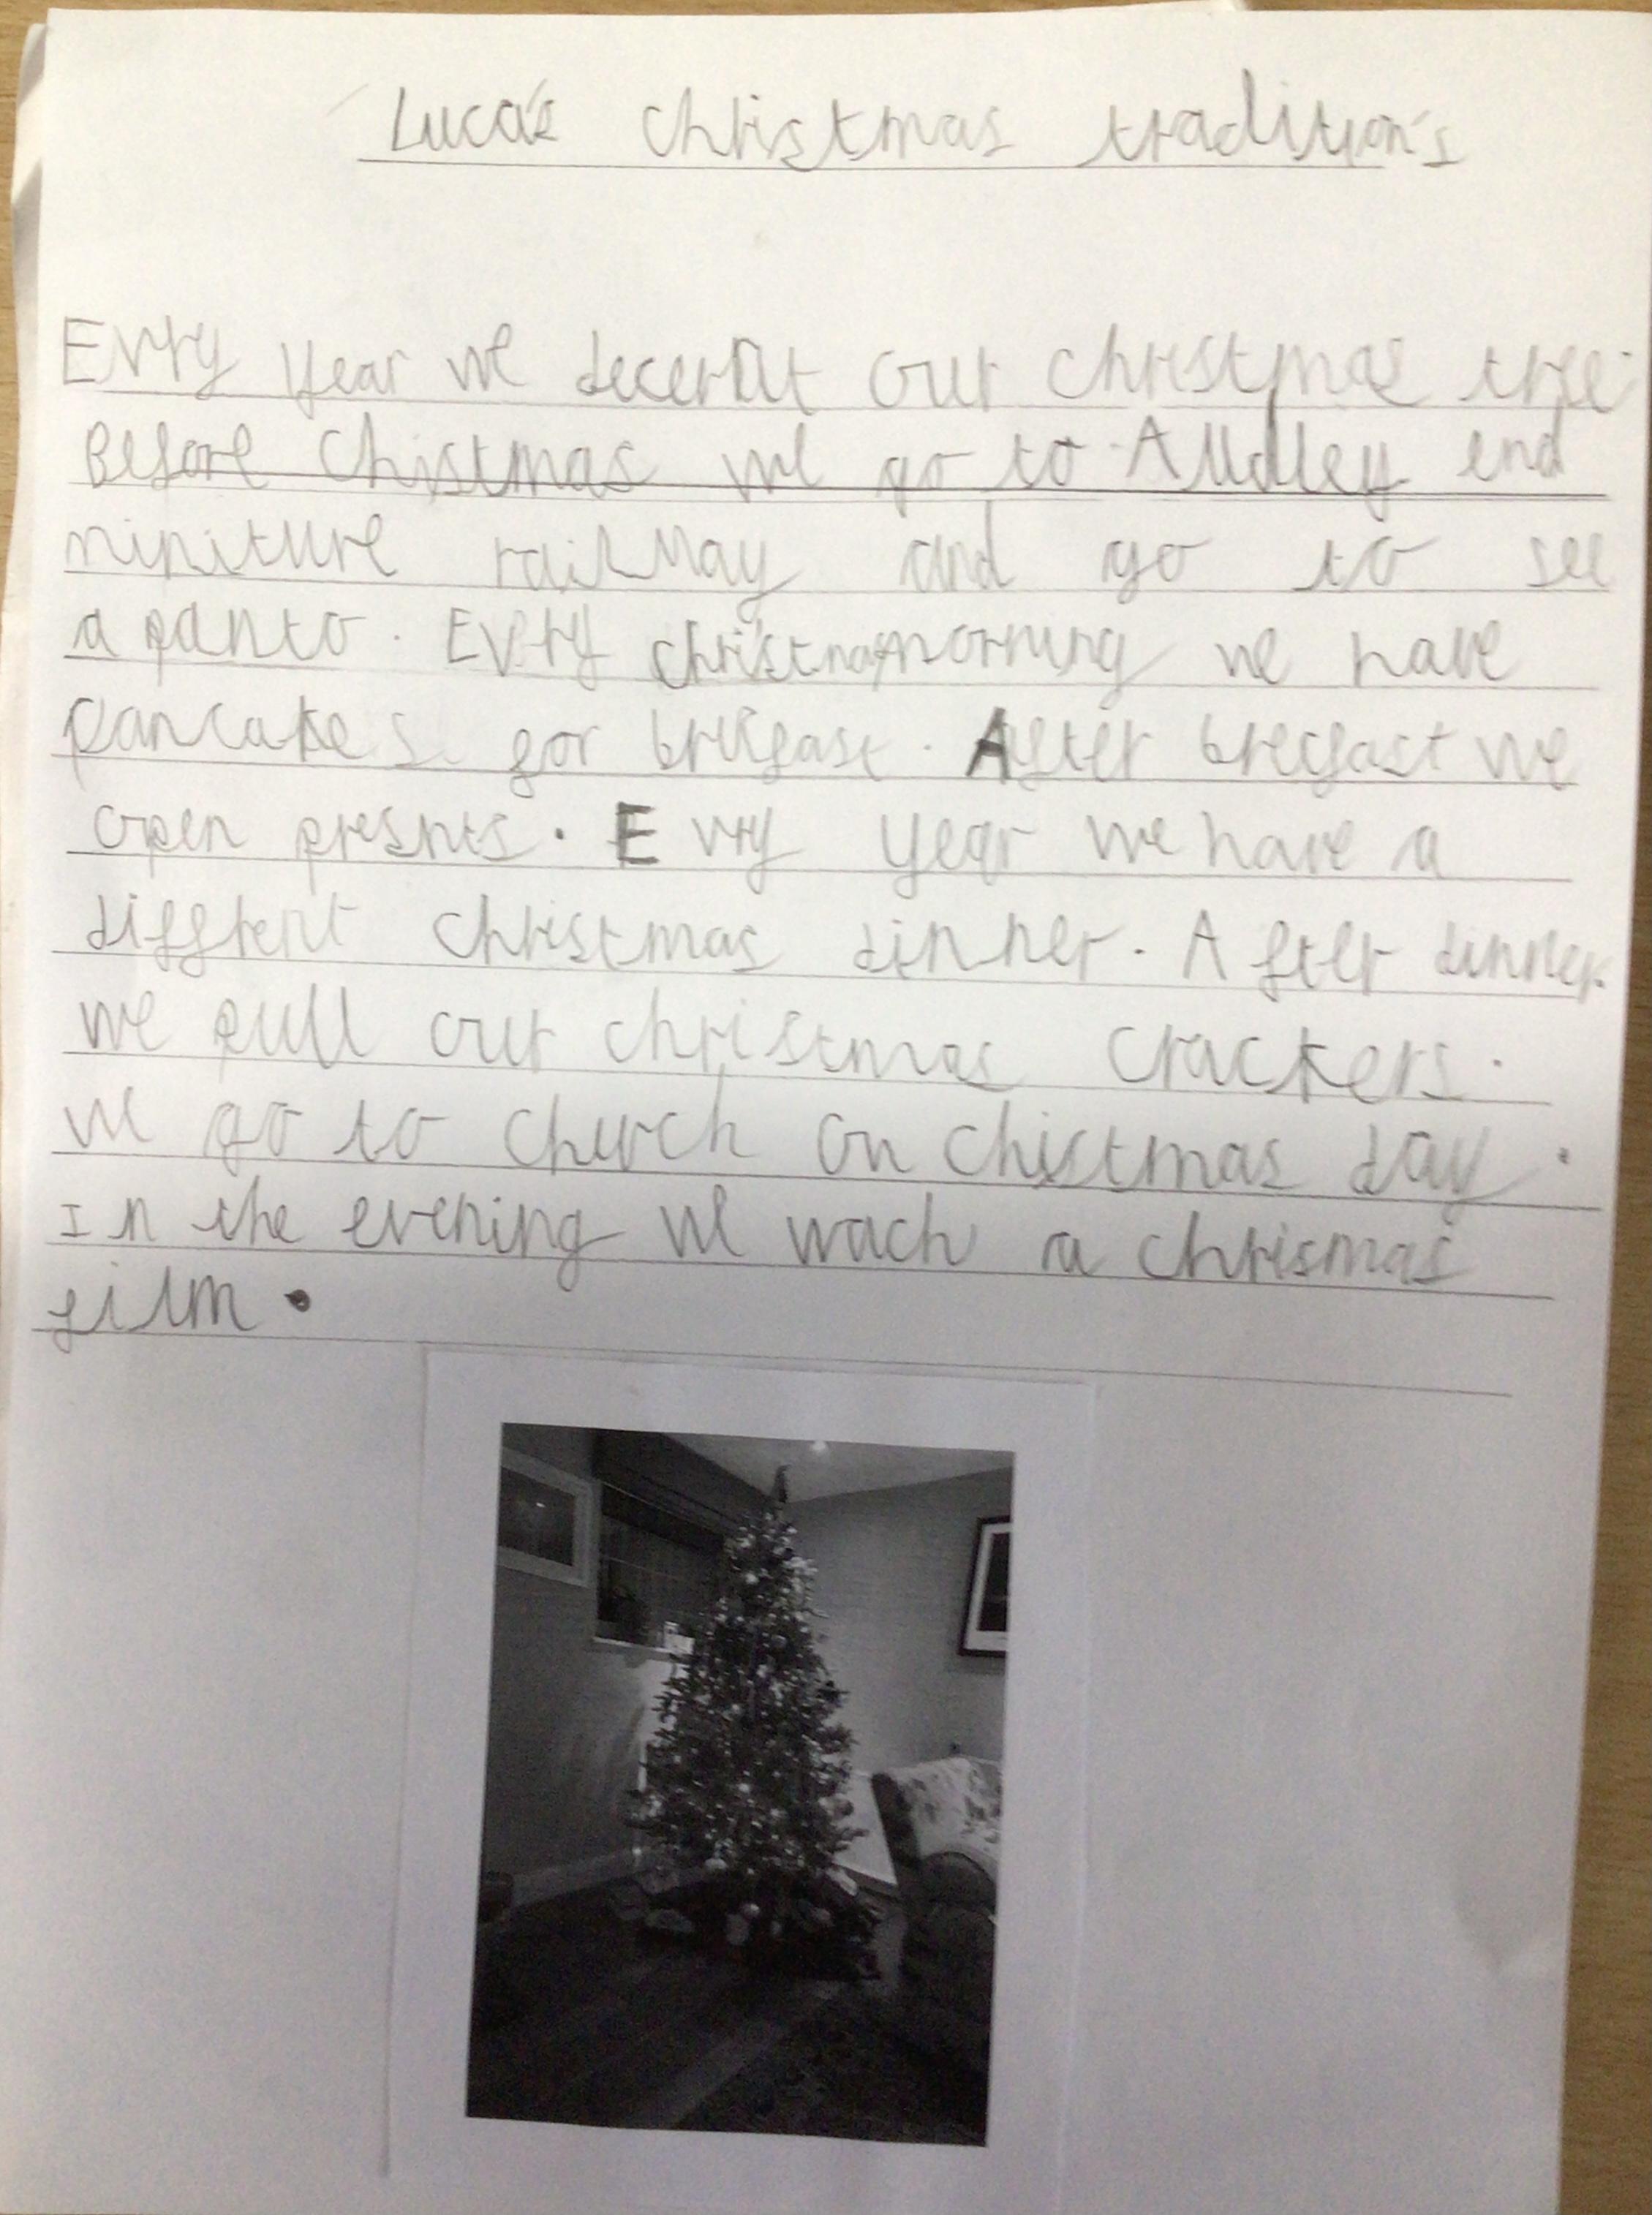 Luca's christmas tradition's
Evry year we decerat our christmas tree.
Before Chistmas we go to Audley end
miniture railway and go to see
a panto. Evry christmas morning we have
pancakes for brekfast. After brecfast we
open presnts. Evry year we have a
diffrent christmas dinner. After dinner
we pull our christmas crackers.
we go to church on chistmas day.
In the evening we wach a chrismas
film.